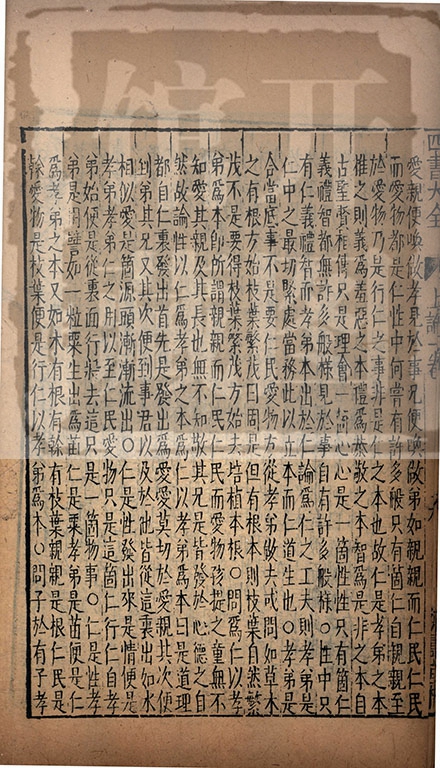 四書大全 上論一卷
愛親便喚做孝見於事兄便喚做弟如親親而仁民仁民
而愛物都是仁性中何嘗有許多般只有箇仁自親親至
於愛物乃是行仁之事非是仁之本也故仁是孝弟之本
推之則義爲羞惡之本禮爲恭敬之本智爲是非之本自
古聖賢相傳只是理會一箇心心是一箇性性只有箇仁
義禮智都無許多般樣見於事自有許多般樣○性中只
有仁義禮智而孝弟本出於仁論爲仁之工夫則孝弟是
仁中之最切緊處當務此以立本而仁道生也○孝弟是
合當底事不是要仁民愛物方從孝弟做去或問如草木
之有根方始枝葉繁茂曰固是但有根本則枝葉自然繁
茂不是要得枝葉繁茂方始去培植本根○問爲仁以孝
弟爲本即所謂親親而仁民仁民而愛物孩提之童無不
知愛其親及其長也無不知敬其兄是皆發於心德之自
然故論性以仁爲孝弟之本爲仁以孝弟爲本曰是道理
都自仁裏發出首先是發出爲愛愛莫切於愛親其次便
到弟其兄又其次便到事君以及於他皆從這裏出如水
相似愛是箇源頭漸漸流出○仁是性發出來是情便是
孝弟孝弟仁之用以至仁民愛物只是這箇仁行仁自孝
弟始便是從裏面行將去這只是一箇物事○仁是性孝
弟是用譬如一粒粟生出爲苗仁是粟孝弟是苗便是仁
爲孝弟之本又如木有根有榦有枝葉親親是根仁民是
榦愛物是枝葉便是行仁以孝弟爲本○問子於有子孝